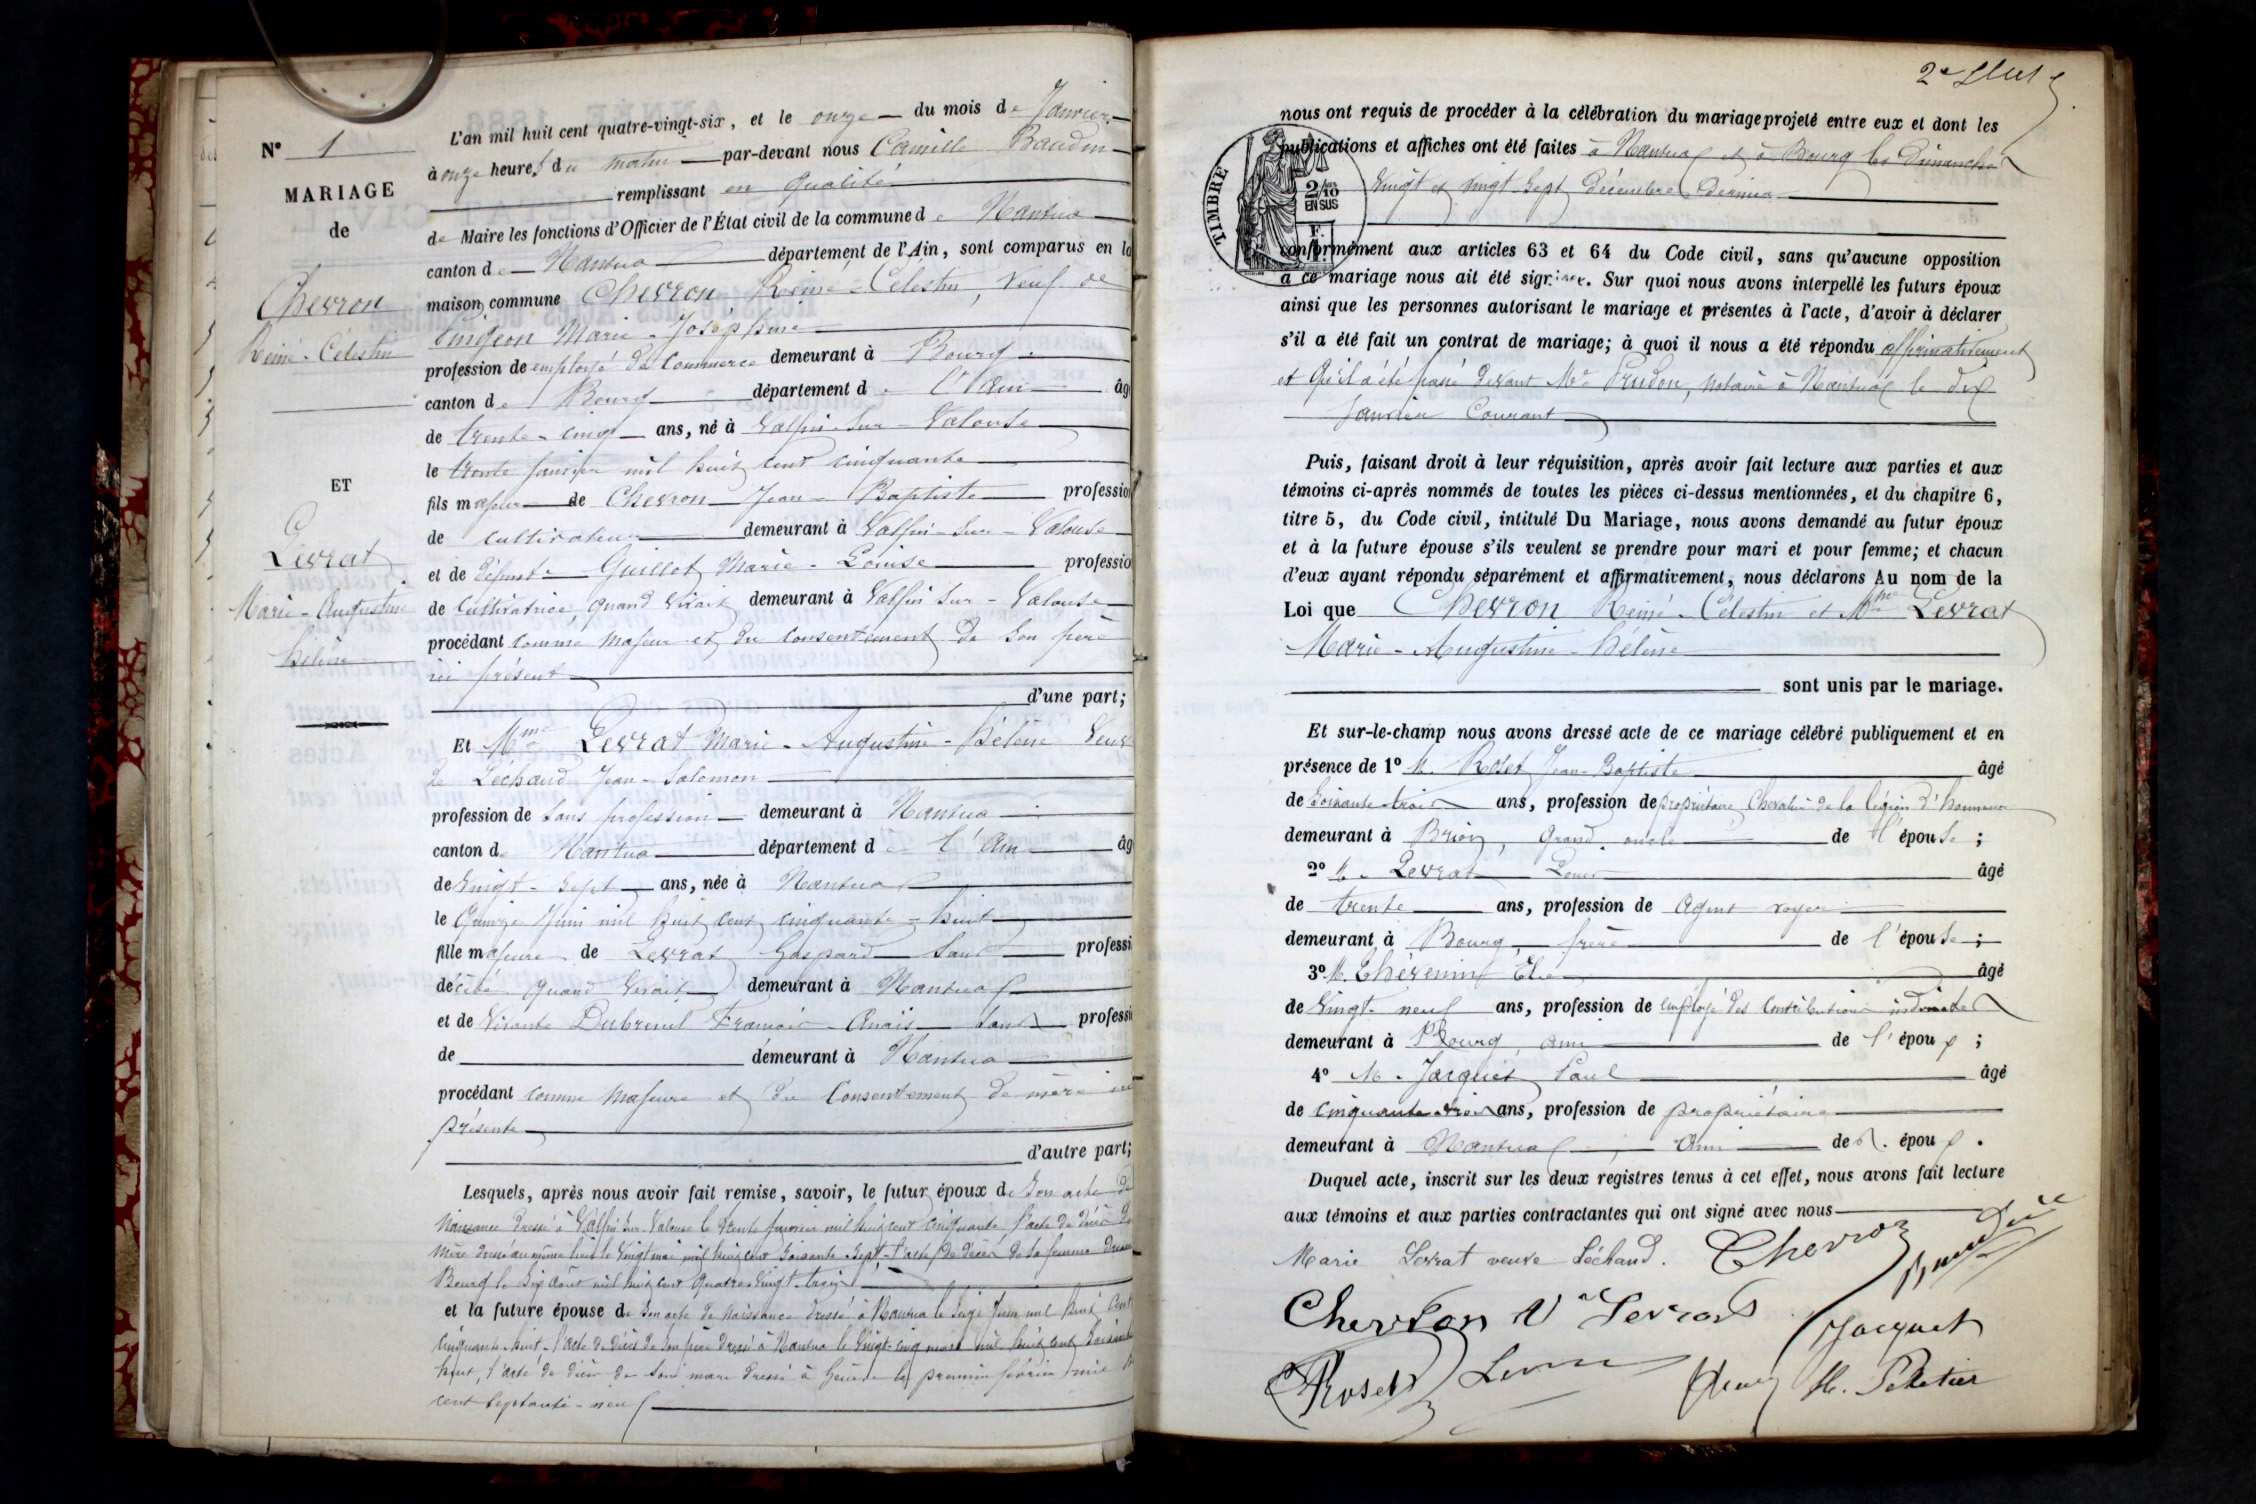 N° 1
MARIAGE
de
Chevron
Réiné-Célestin
ET
Levrat
Marie-Augustine
hélène
L'an mil huit cent quatre-vingt-six, et le onze du mois de Janvier
à onze heures du matin par-devant nous Camille Baudin
remplissant en qualité
de Maire les fonctions d'Officier de l'État civil de la commune de Nantua
canton de Nantua département de l'Ain, sont comparus en la
maison commune Chevron Réiné-Célestin, veuf de
Marie-Joséphine
profession de employé de Commerce demeurant à Bourg
canton de Bourg département de l'Ain âg
de trente-cinq ans, né à Valfin-sur-Valouse
le trente janvier mil huit cent cinquante
fils majeur de Chevron Jean-Baptiste profession
de cultivateur demeurant à Valfin-sur-Valouse
et de défunte Guillot Marie-Louise professio
de cultivatrice quand vivait demeurant à Valfin sur-Valouse
procédant comme majeur et du consentement de son père
ici présent
d'une part;
Et Mme Levrat Marie-Augustine-hélène veuve
de Léchaud Jean-Salomon
profession de sans profession demeurant à Nantua
canton de Nantua département de l'Ain âg
de vingt-sept ans, née à Nantua
le quinze Juin mil huit cent cinquante-huit
fille majeure de Levrat Gaspard sans professi
décédé quand vivait demeurant à Nantua
et de vivante Dubreuil Anaïs sans professi
de demeurant à Nantua
procédant comme majeure et du Consentement de mère ici
présente
d'autre part;
Lesquels, après nous avoir fait remise, savoir, le futur époux de son acte de
Naissance dressé à Valfin-sur-Valouse le trente janvier mil huit cent cinquante, l'acte de décès de
mère dressé au même lieu le vingt mai mil huit cent soixante-sept, l'acte de décès de sa femme dressé
Bourg le six août mil huit cent quatre-vingt-trois
et la future épouse de son acte de naissance dressé à Nantua le seize Juin mil huit cent
cinquante-huit, l'acte de décès de son père dressé à Nantua le vingt-cinq mars mil huit cent soixante
huit, l'acte de décès de son mari dressé à Genève le premier février mil
cent septante-neuf
2e
nous ont requis de procéder à la célébration du mariage projeté entre eux et dont les
publications et affiches ont été faites à Nantua et à Bourg les Dimanches
vingt et vingt sept décembre dernier
TIMBRE
2/10
EN SUS
F.
conformément aux articles 63 et 64 du Code civil, sans qu'aucune opposition
à ce mariage nous ait été signifiée. Sur quoi nous avons interpellé les futurs époux
ainsi que les personnes autorisant le mariage et présentes à l'acte, d'avoir à déclarer
s'il a été fait un contrat de mariage; à quoi il nous a été répondu affirmativement
et qu'il a été passé devant Me Prudon, notaire à Nantua le dix
Janvier Courant
Puis, faisant droit à leur réquisition, après avoir fait lecture aux parties et aux
témoins ci-après nommés de toutes les pièces ci-dessus mentionnées, et du chapitre 6,
titre 5, du Code civil, intitulé Du Mariage, nous avons demandé au futur époux
et à la future épouse s'ils veulent se prendre pour mari et pour femme; et chacun
d'eux ayant répondu séparément et affirmativement, nous déclarons Au nom de la
Loi que Chevron Réiné-Célestin et Mme Levrat
Marie-Augustine-hélène
sont unis par le mariage.
Et sur-le-champ nous avons dressé acte de ce mariage célébré publiquement et en
présence de 1° M. Roset Jean-Baptiste âgé
de soixante-trois ans, profession de propriétaire, Chevalier de la légion d'honneur
demeurant à Brion, grand oncle de l'épouse;
2° M. Levrat Louis âgé
de trente ans, profession de Agent voyer
demeurant à Bourg, frère de l'épouse;
3° M. Thévenin Élie âgé
de vingt-neuf ans, profession de employé des Contributions indirectes
demeurant à Bourg, ami de l'époux;
4° M. Jacquet Paul âgé
de cinquante-trois ans, profession de propriétaire
demeurant à Nantua, ami de l'époux.
Duquel acte, inscrit sur les deux registres tenus à cet effet, nous avons fait lecture
aux témoins et aux parties contractantes qui ont signé avec nous
Marie Levrat veuve Léchaud. Chevron
Chevron Vve Levrat
Jacquet
Roset
H. Peletier